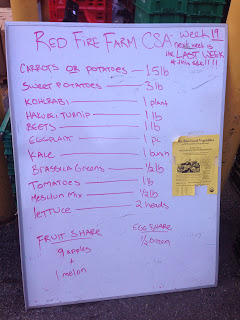 RED FIRE FARM CSA
Week 19
next week is
the LAST WEEK
of this
CARROTS OR POTATOES — 1.5 lb
SWEET POTATOES — 3 lb
KOHLRABI — 1 plant
HAKUREI TURNIP — 1 lb
BEETS — 1 lb
EGGPLANT — 1 pc
KALE — 1 bunch
BRASSICA Greens — 1/2 lb
TOMATOES — 1 lb
MESCLUN MIX — 1/2 lb
LETTUCE — 2 heads
FRUIT SHARE
9 apples
+
1 melon
EGG SHARE
1/2 DOZEN
Vegetables